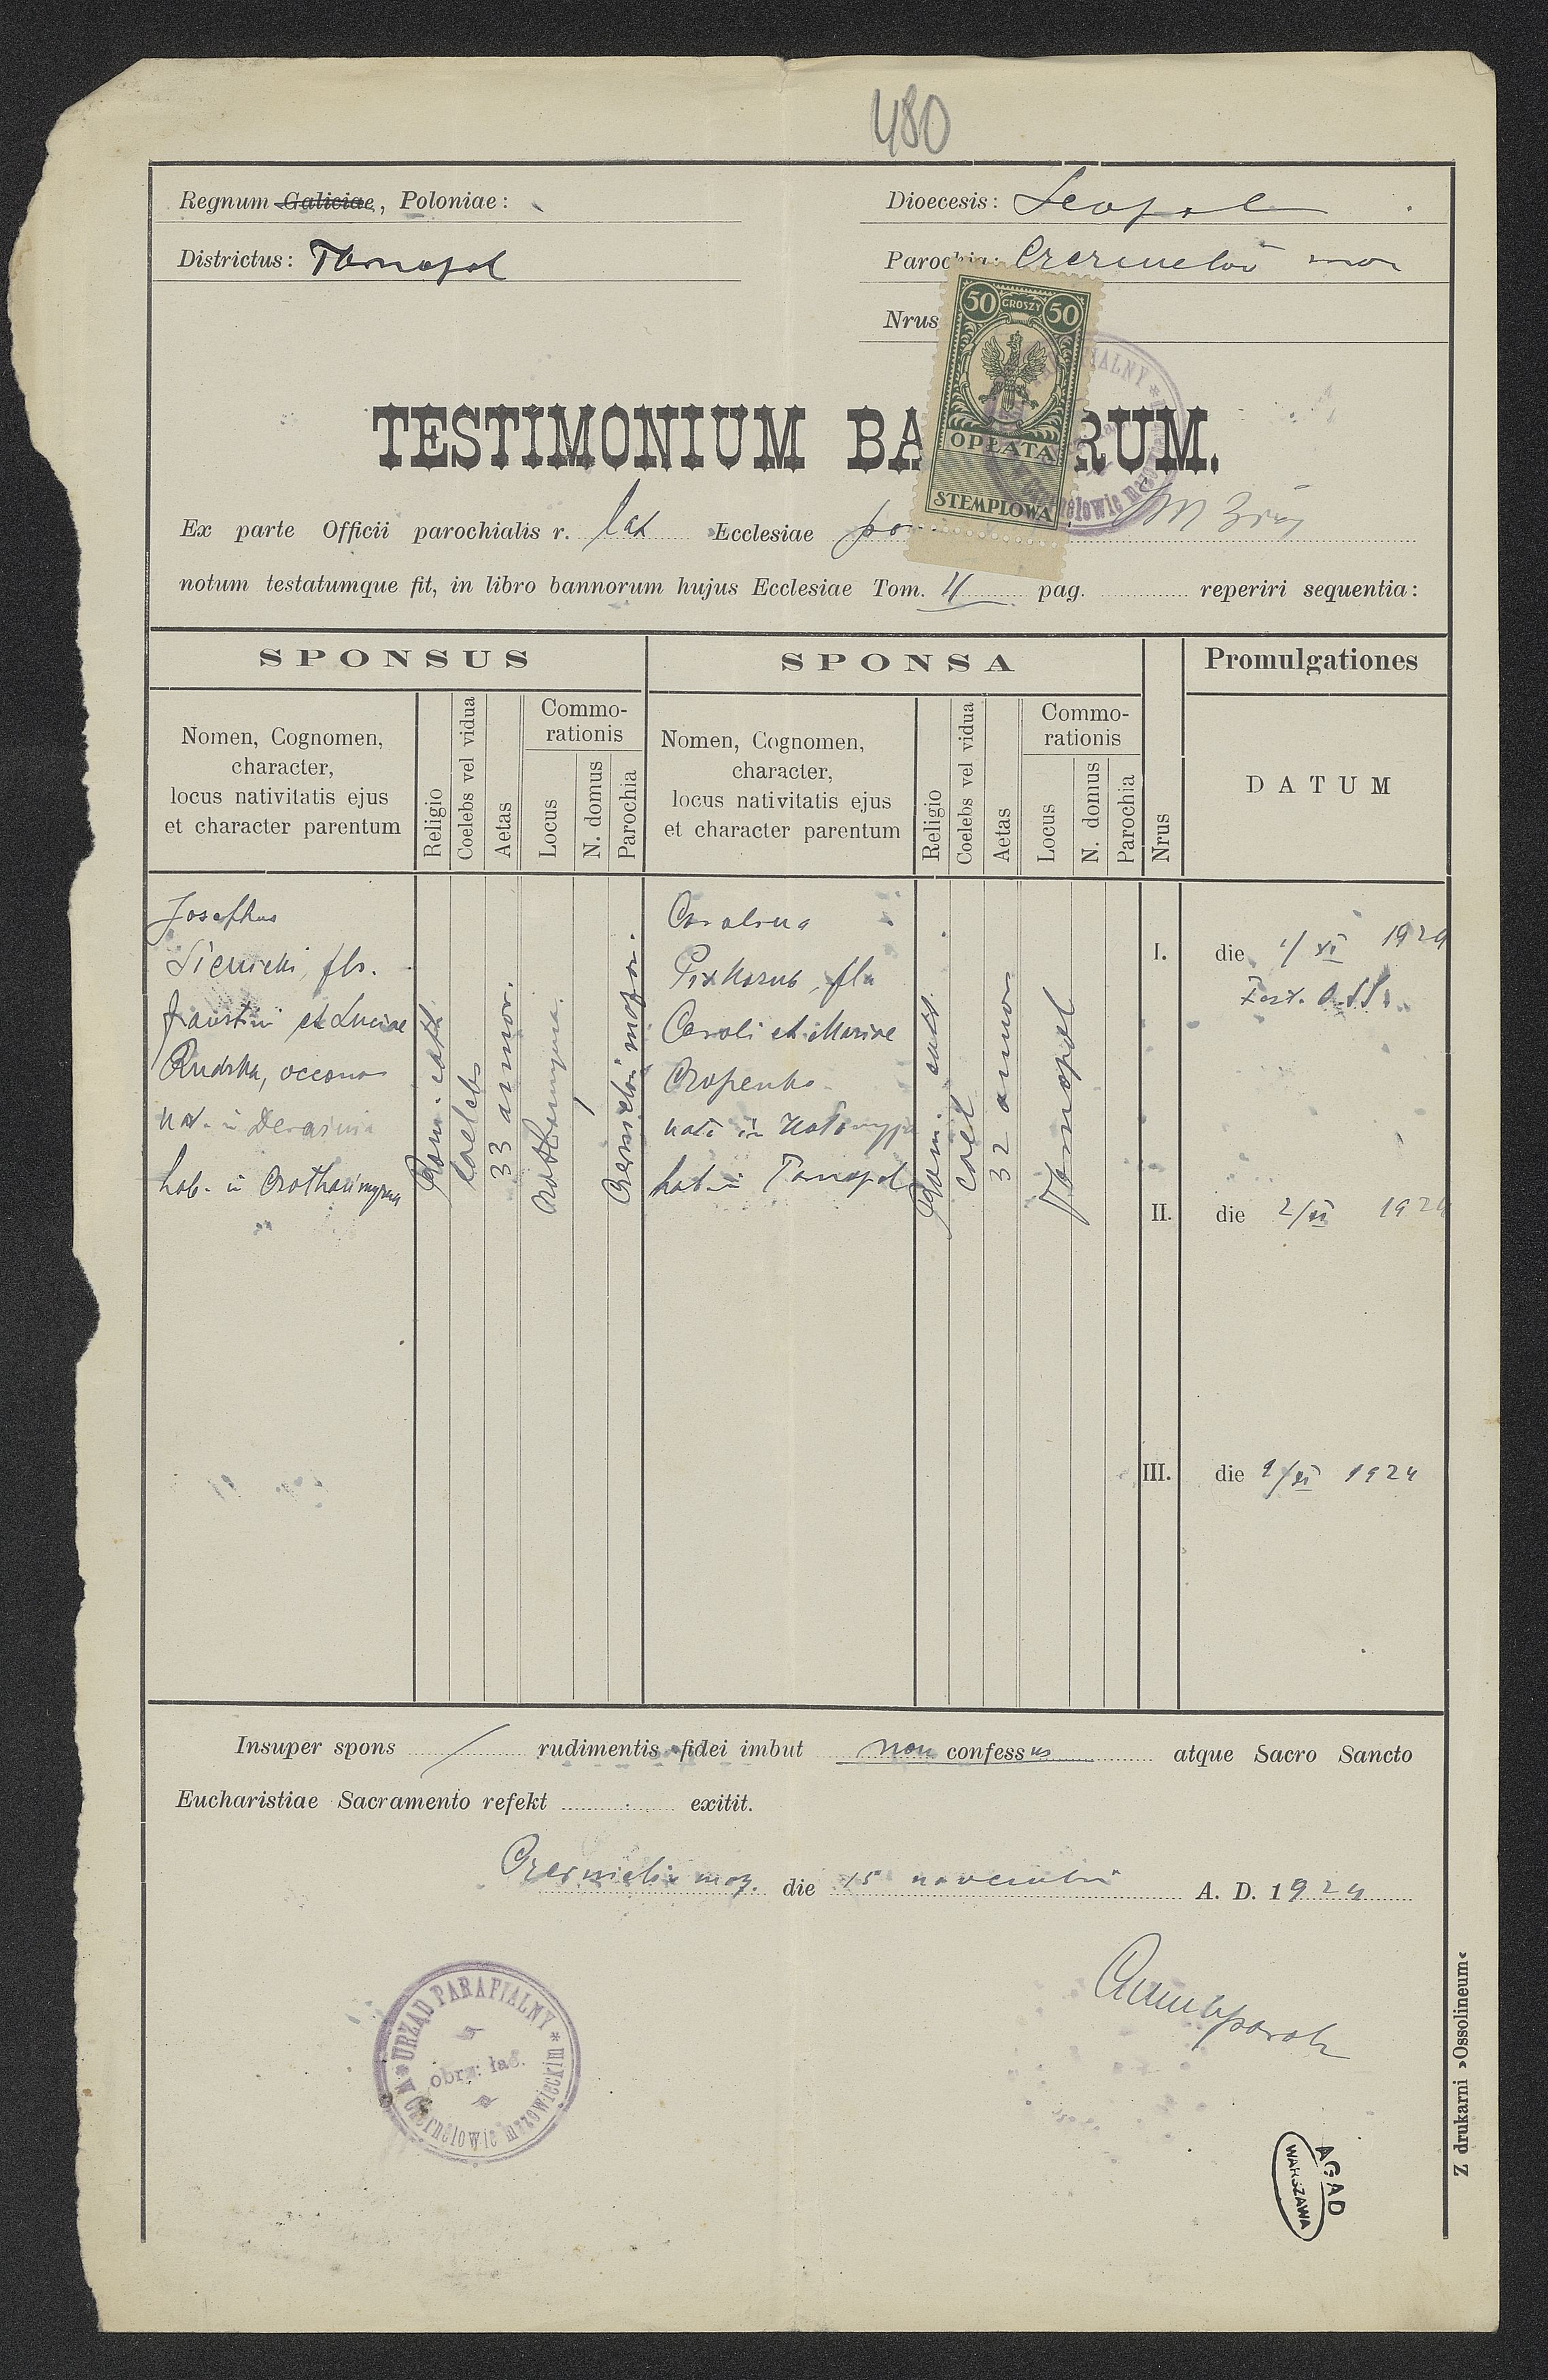 480
Regnum Galiciae, Poloniae:
Dioecesis: Leopol
Districtus: Tarnopol
Parochia: Czernelów maz
Nrus
50 GROSZY 50
OPŁATA
STEMPLOWA
TESTIMONIUM BA RUM.
Ex parte Officii parochialis r. lat Ecclesiae
notum testatumque fit, in libro bannorum hujus Ecclesiae Tom. II pag. reperiri sequentia:
SPONSUS
SPONSA
Promulgationes
Nomen, Cognomen,
character,
locus nativitatis ejus
et character parentum
Religio
Coelebs vel vidua
Aetas
Commo-
rationis
Locus
N. domus
Parochia
Nomen, Cognomen,
character,
locus nativitatis ejus
et character parentum
Religio
Coelebs vel vidua
Aetas
Commo-
rationis
Locus
N. domus
Parochia
Nrus
DATUM
Josephus
Sienicki, fls.
Faustini et Luciae
Rudzka, occono
nat. in Deraznia
hab. in
Rom. cath
Coelebs
33 annor.
Carolina
fla
Caroli et Mariae
Czopenko
nata in
hab in Tarnopol
Rom. cath.
Coel
32 annor
Tarnopol
I. die 1/XI 1924
Fest. O.SS.
II. die 2/XI 1924
III. die 9/XI 1924
Insuper spons rudimentis fidei imbut non confessus atque Sacro Sancto
Eucharistiae Sacramento refekt exitit.
Czernielów maz. die 15 novembri A. D. 1924
* URZĄD PARAFIALNY *
obrz: łac.
w Czernelowie mazowieckim
AGAD
WARSZAWA
Z drukarni »Ossolineum«